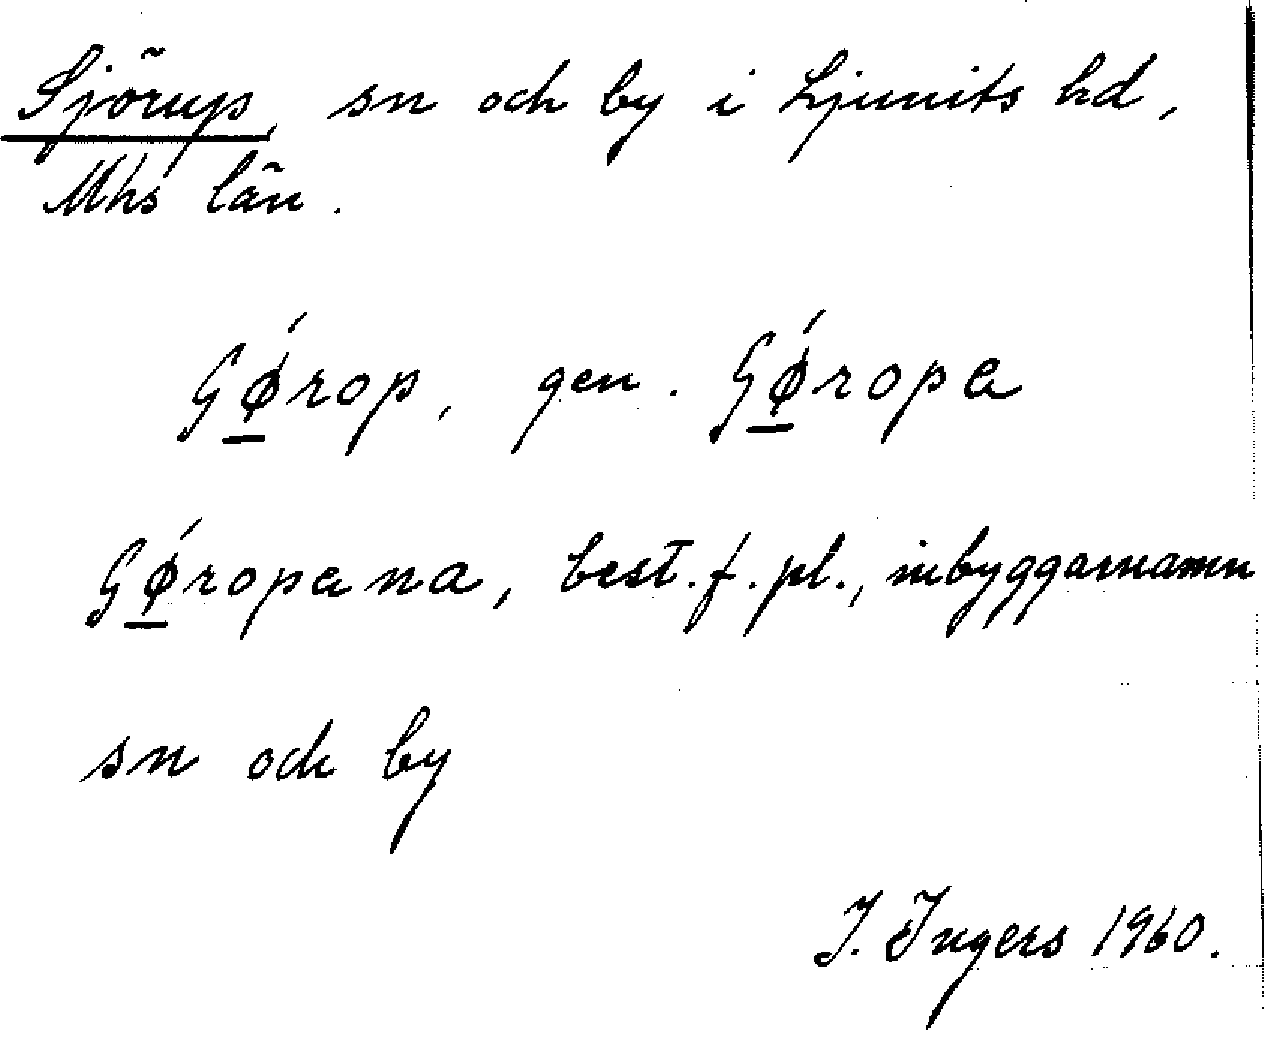 Sjörup, sn och by i Ljunits hd,
Mhs län.
Gǿ̲rop, gen. Gǿ̲ropa
Gǿ̲ropana, best. f. pl., inbyggarnamn
sn och by
I. Ingers 1960.